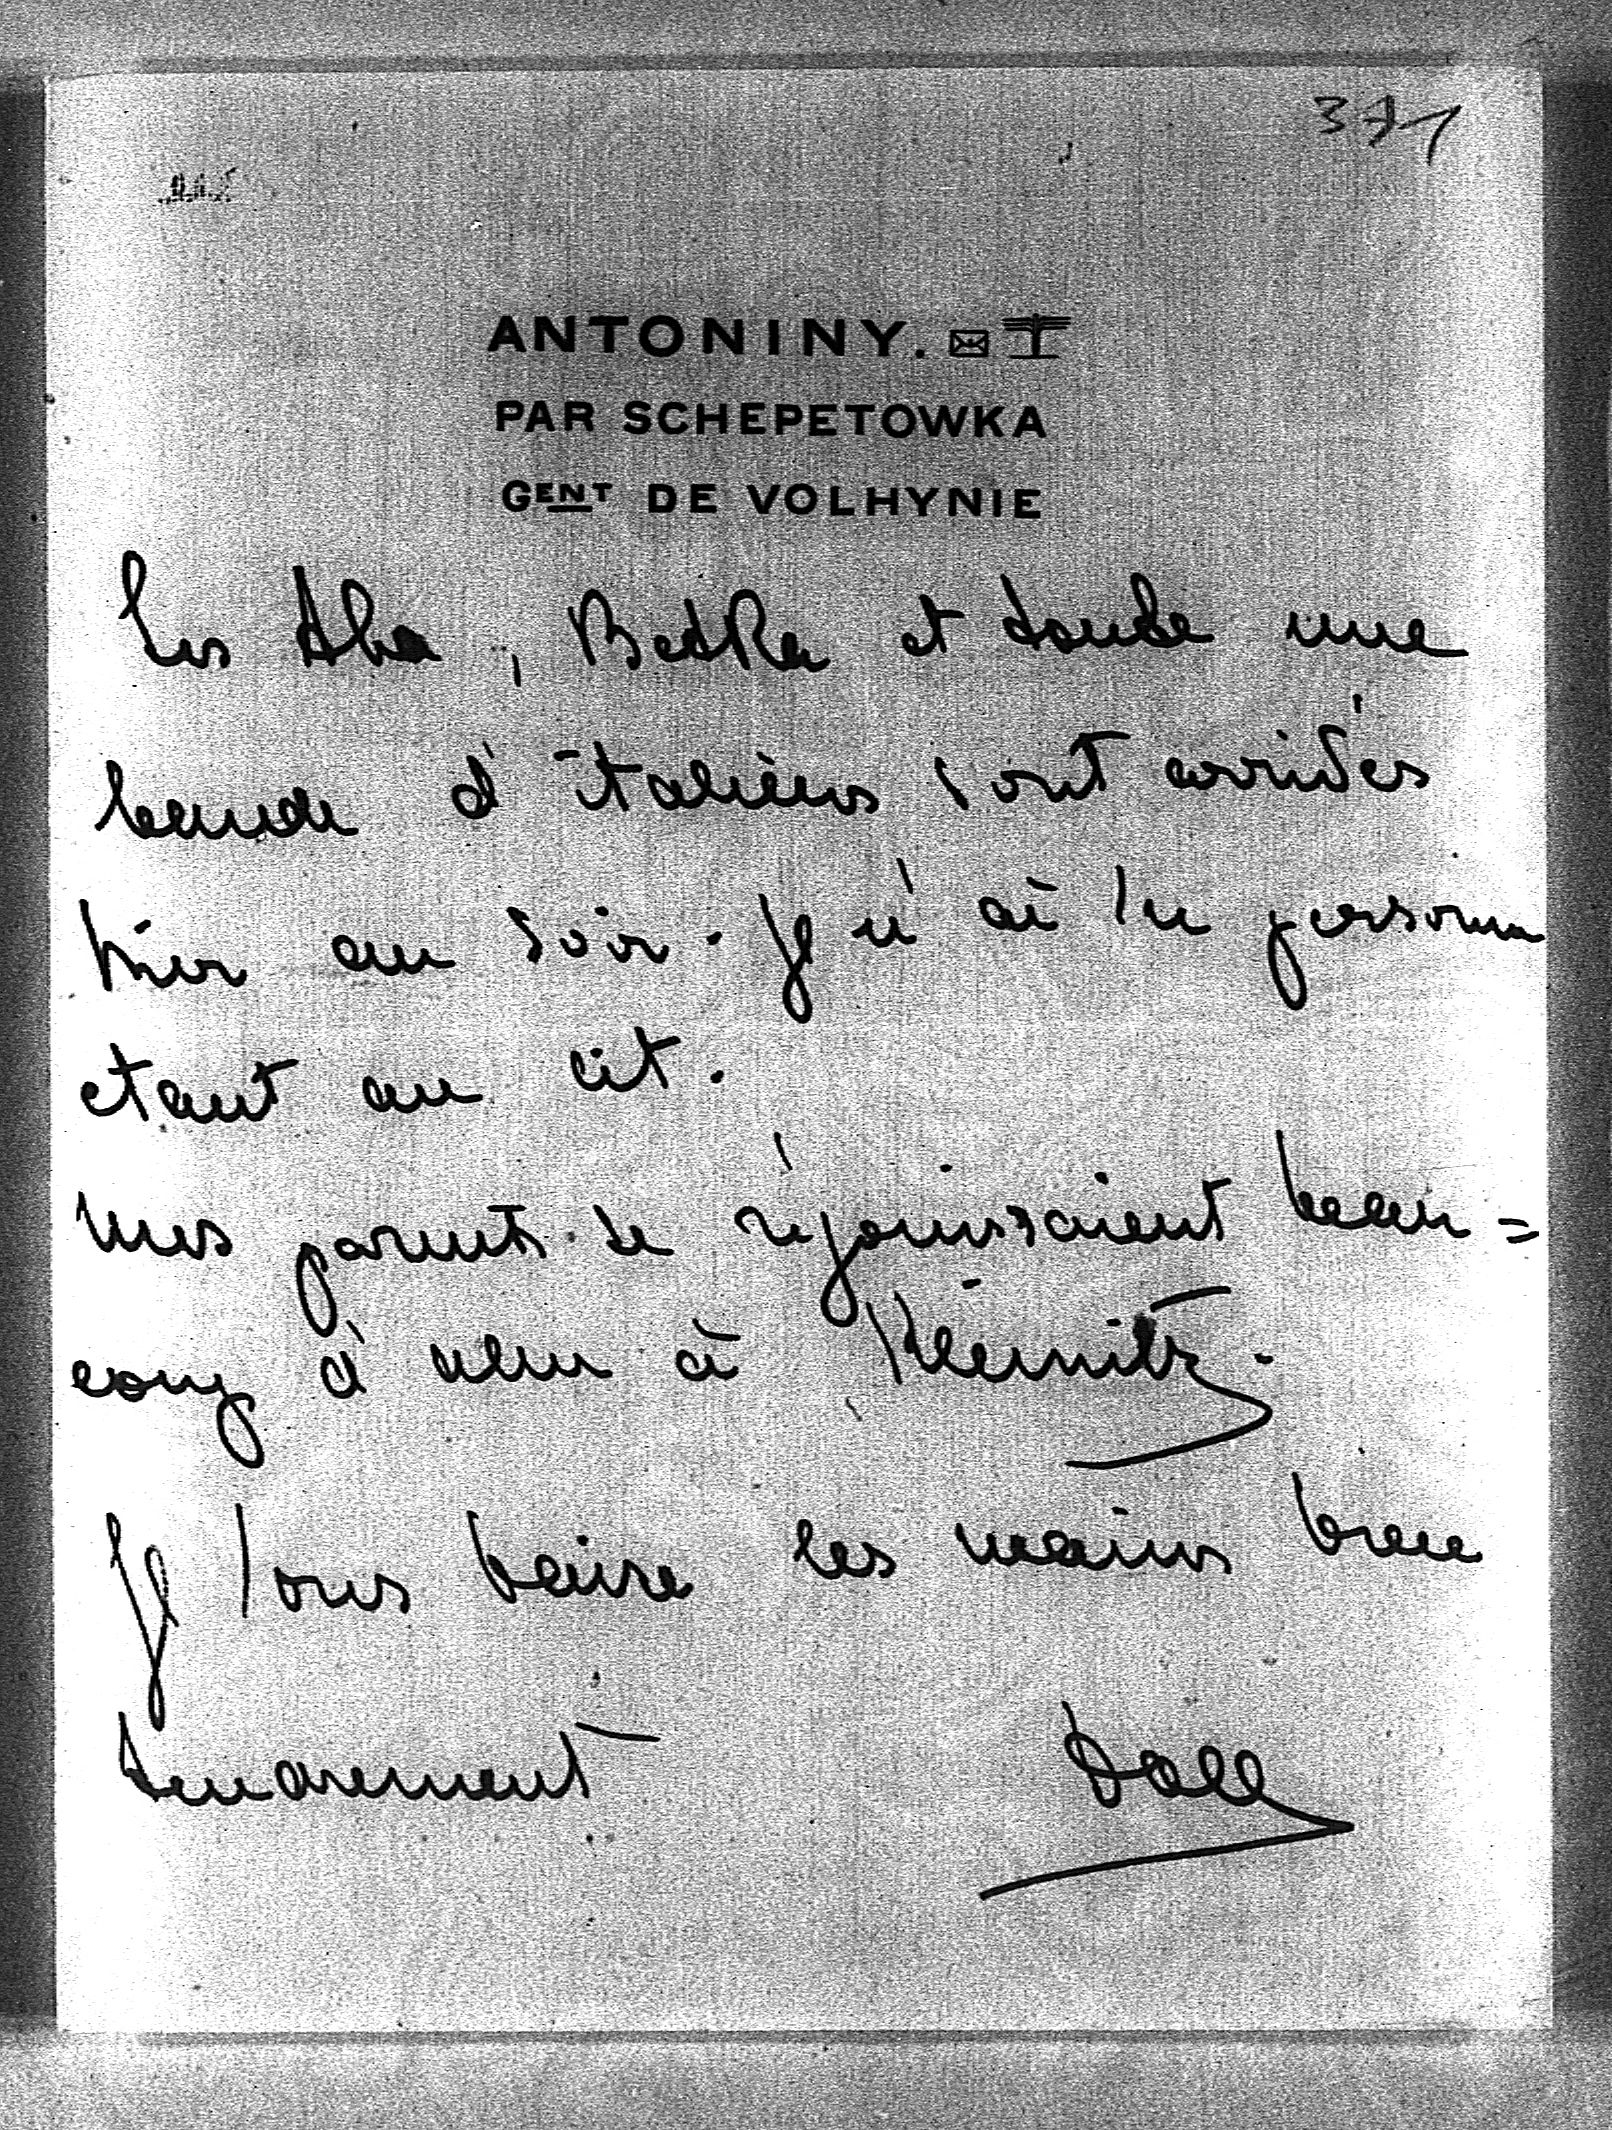 371
ANTONINY.
PAR SCHEPETOWKA
GENT DE VOLHYNIE
Les Aba, Betka et toute une
bande d'italiens sont arrivés
hier au soir. Je n'ai vu personne
etant au lit.
Mes parents se réjouissaient beau=
coup d'aller à Kleinitz.
Je vous baise les mains bien
tendrement